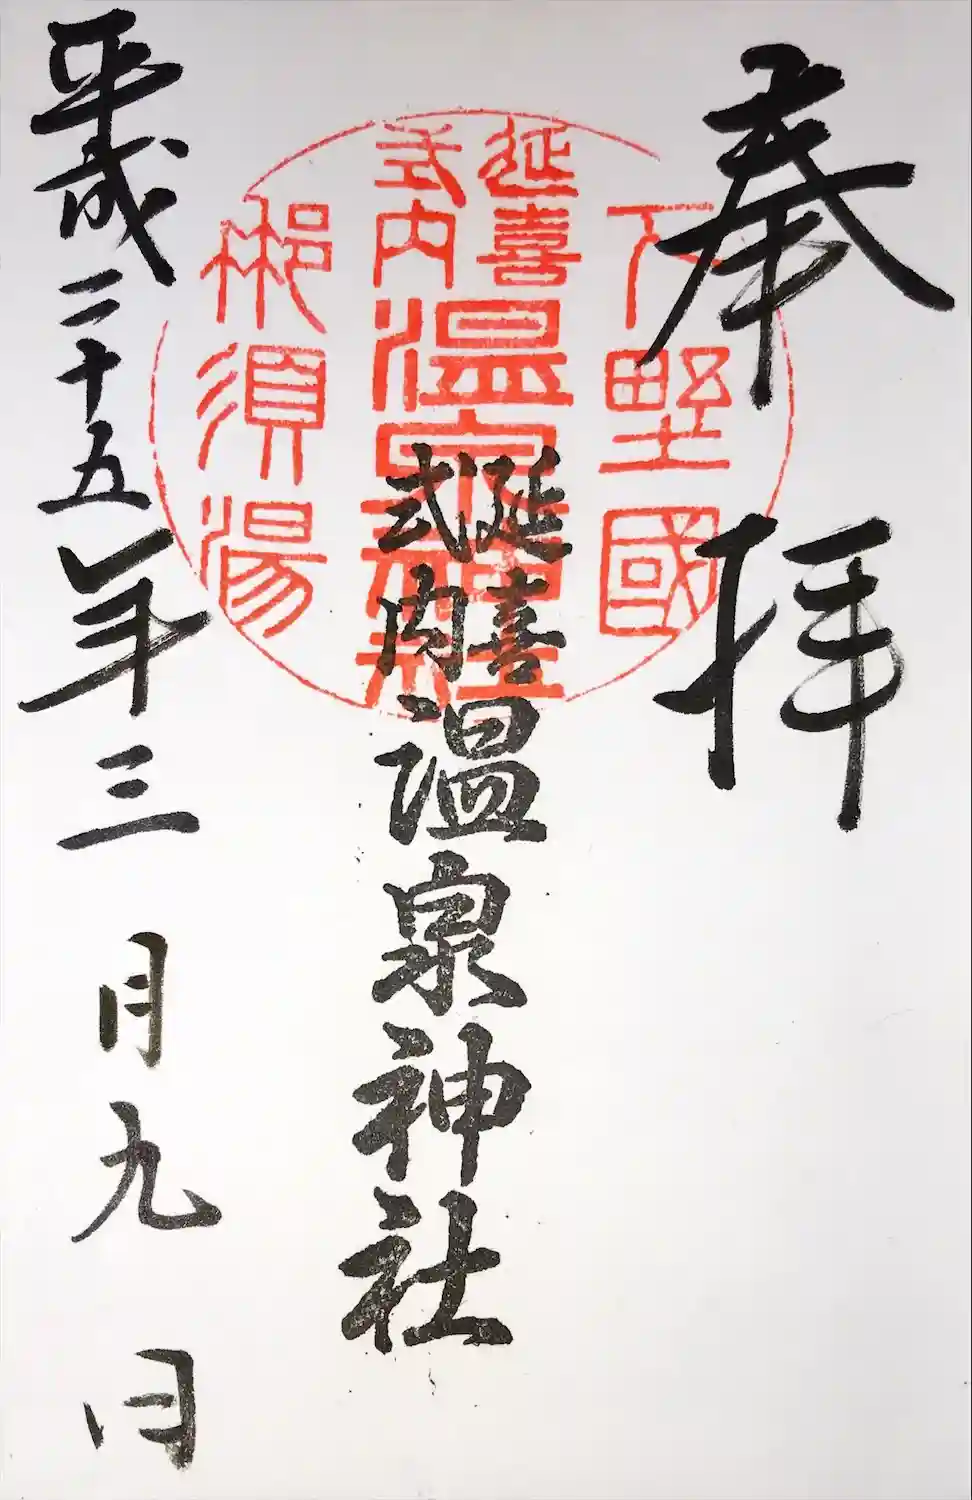 奉拝
下野國
延喜
式内
温泉神社
那須湯
延喜
式内
温泉神社
平成二十五年三月九日